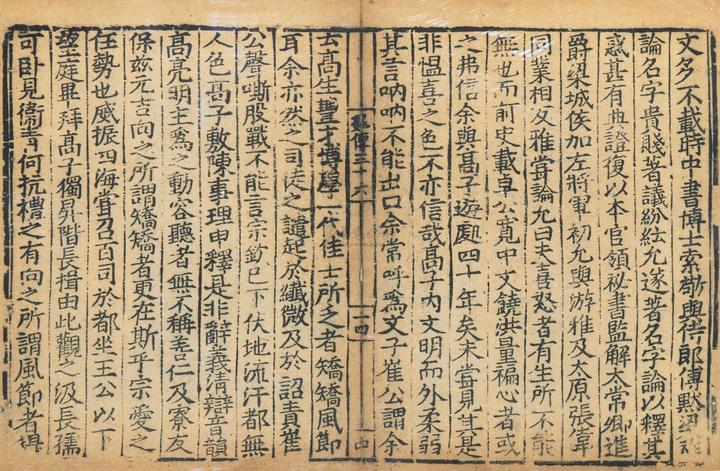 文多不載時中書博士索敞與侍郎傅默梁祚
論名字貴賤著議紛紜允遂著名字論以釋其
惑甚有典證復以本官領祕書監解太常卿進
爵梁城侯加左將軍初允與游雅及太原張偉
同業相友雅嘗論允曰夫喜怒者有生所不能
無也而前史載卓公寬中文饒洪量褊心者或
之弗信余與高子遊處四十年矣未嘗見其是
非愠喜之色不亦信哉高子内文明而外柔弱
其言呐呐不能出口余常呼爲文子崔公謂余
傳三十六
云高生豐才博學一代佳士所乏者矯矯風節
耳余亦然之司徒之譴起於纖微及於詔責崔
公聲嘶股戰不能言宗欽已下伏地流汗都無
人色高子敷陳事理申釋是非辭義清辯音韻
高亮明主爲之動容聽者無不稱善仁及寮友
保兹元吉向之所謂矯矯者更在斯乎宗愛之
任勢也威振四海嘗召百司於都坐王公以下
望庭畢拜高子獨昇階長揖由此觀之汲長孺
可卧見衛青何抗禮之有向之所謂風節者得